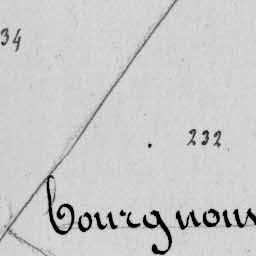 34
232
bourgnou